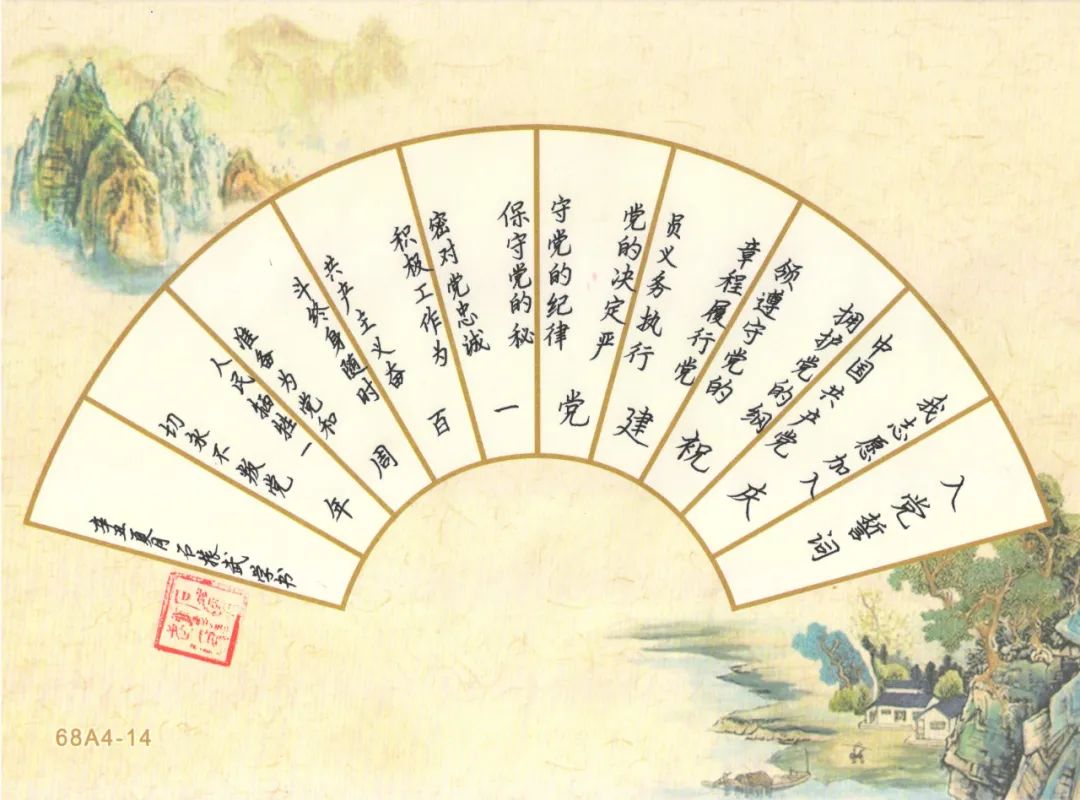 入党誓词
我志愿加入
中国共产党
拥护党的纲
领遵守党的
章程履行党
员义务执行
党的决定严
守党的纪律
保守党的秘
密对党忠诚
积极工作为
共产主义奋
斗终身随时
准备为党和
人民牺牲一
切永不叛党
庆祝建党一百周年
辛丑夏月石振武学书
68A4-14